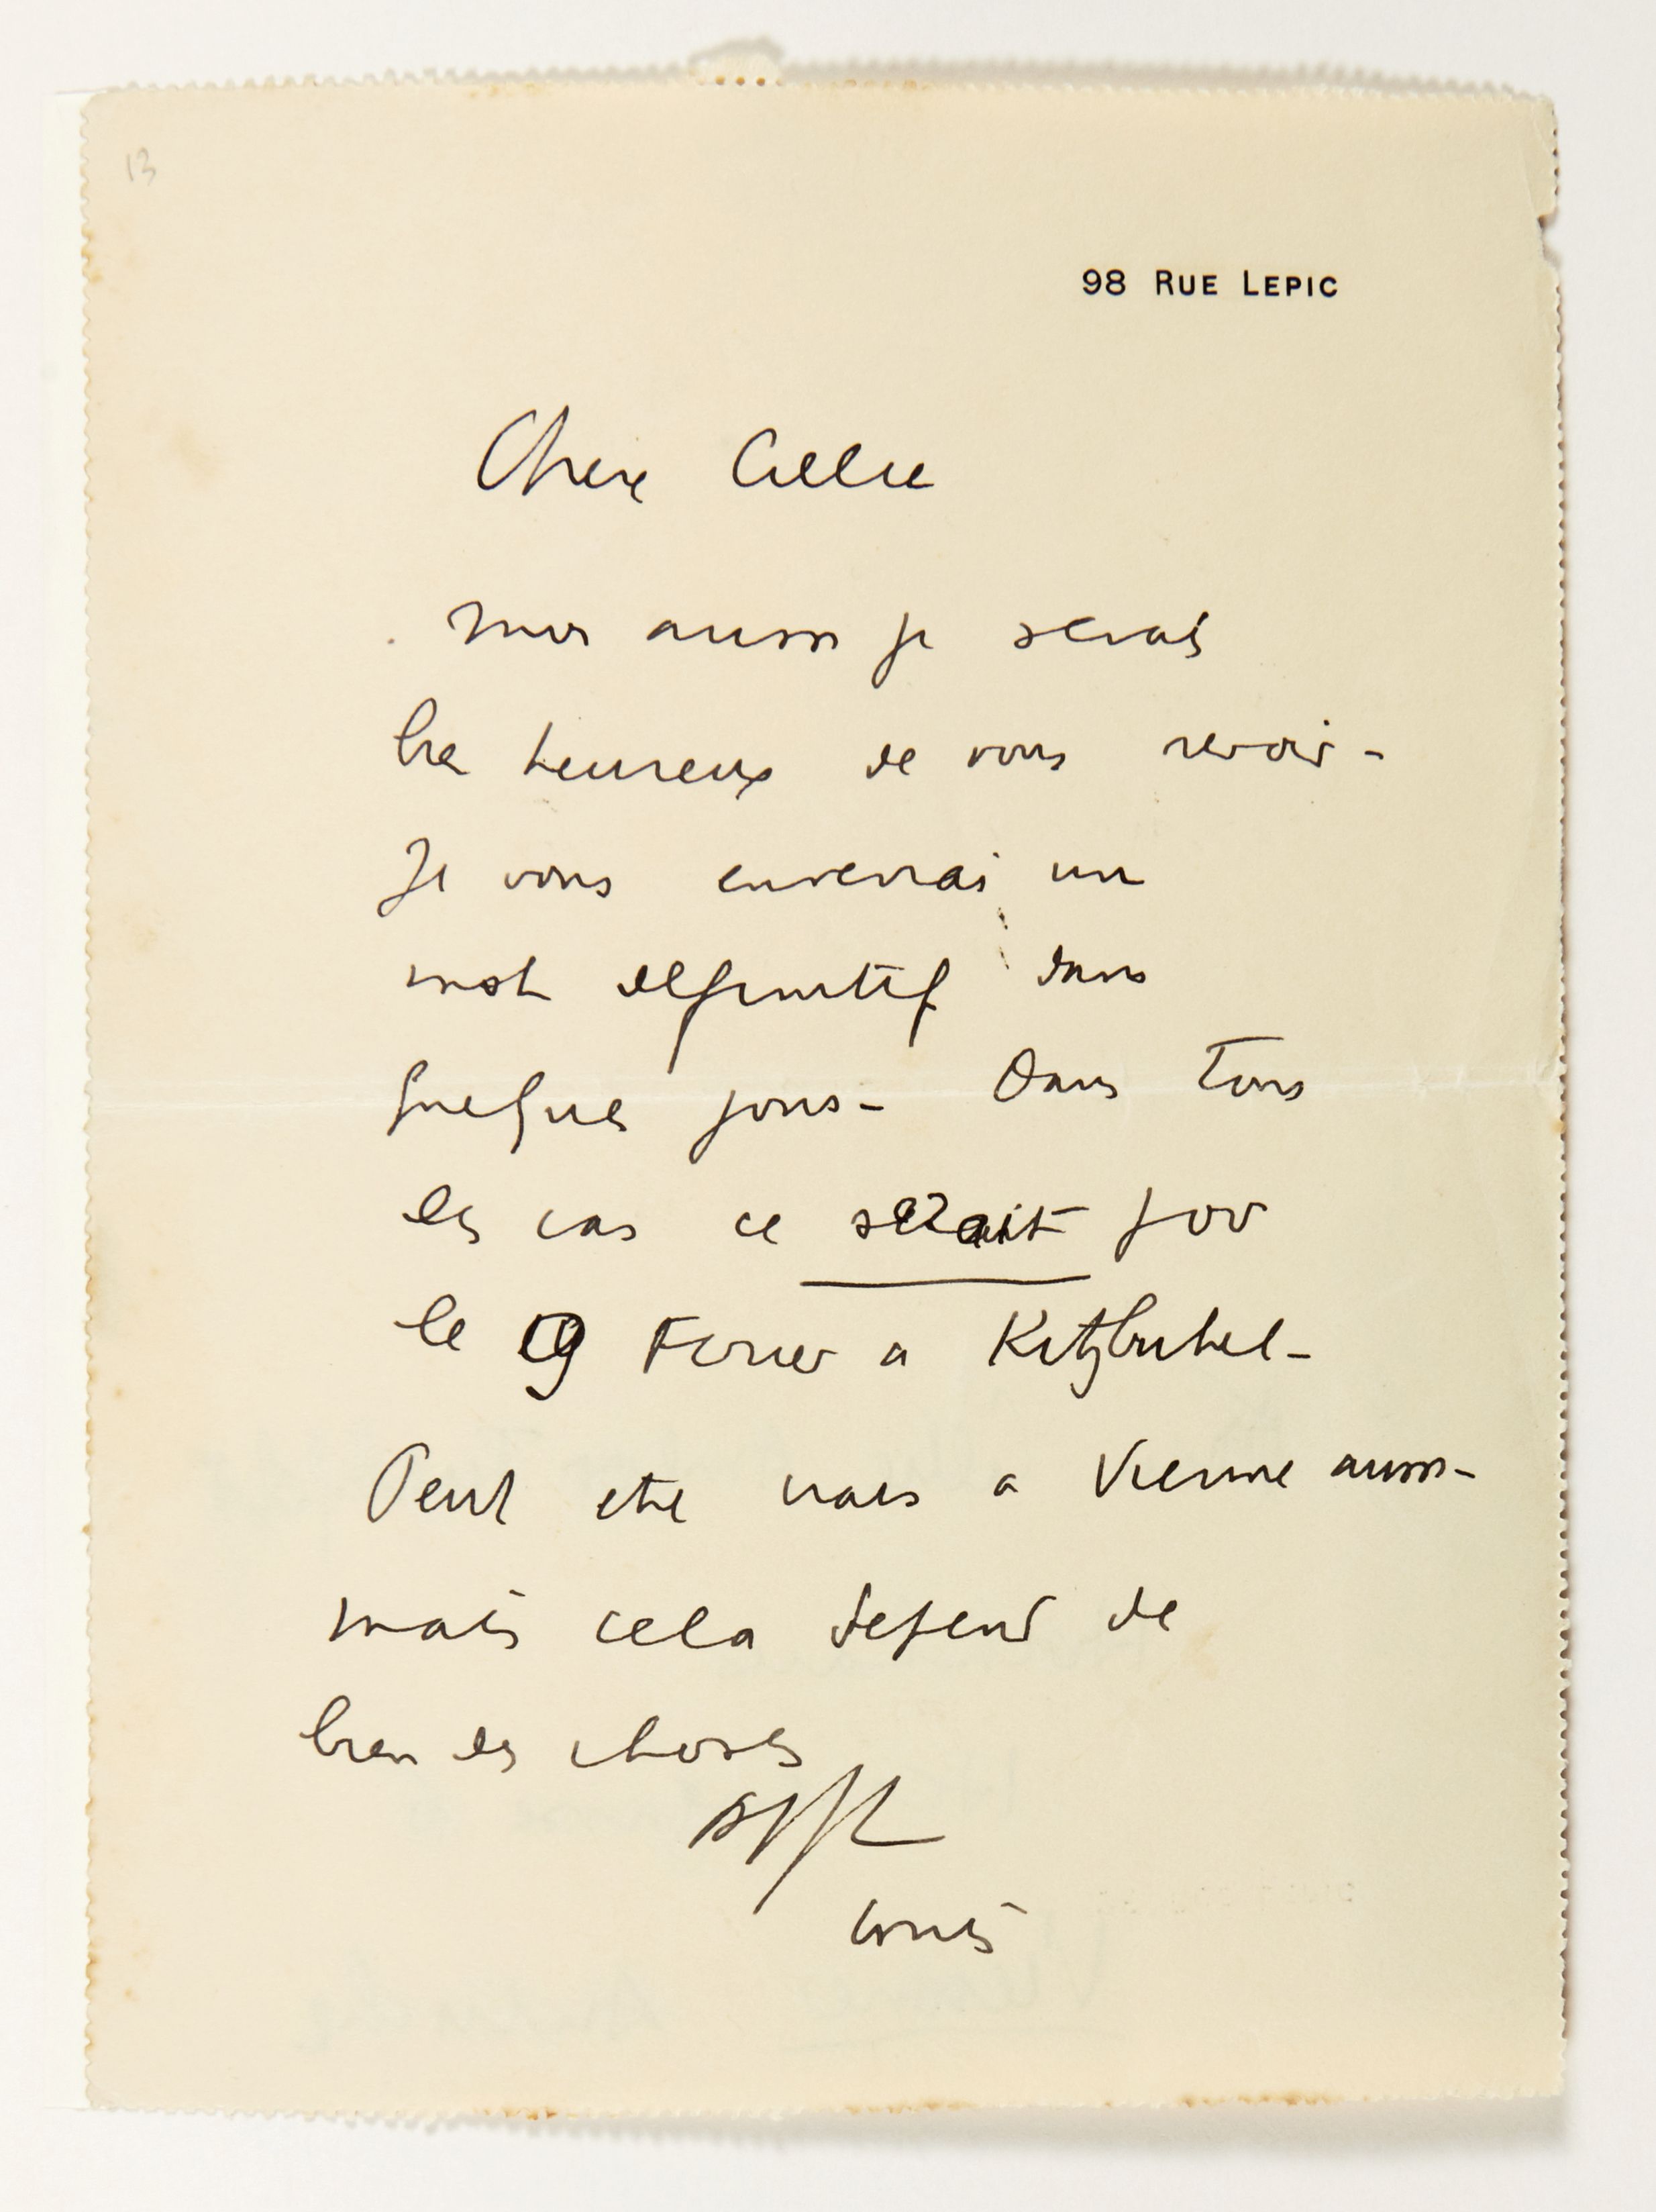 13
98 RUE LEPIC
Chere Cillie
Moi aussi je serais
bien heureux de vous revoir -
Je vous enverrai un
mot definitif dans
quelques jours - Dans tous
les cas ce serait pour
le 9 Fevrier a Kitzbuhel -
Peut etre irais a Vienne aussi -
mais cela depend de
bien des choses
Louis